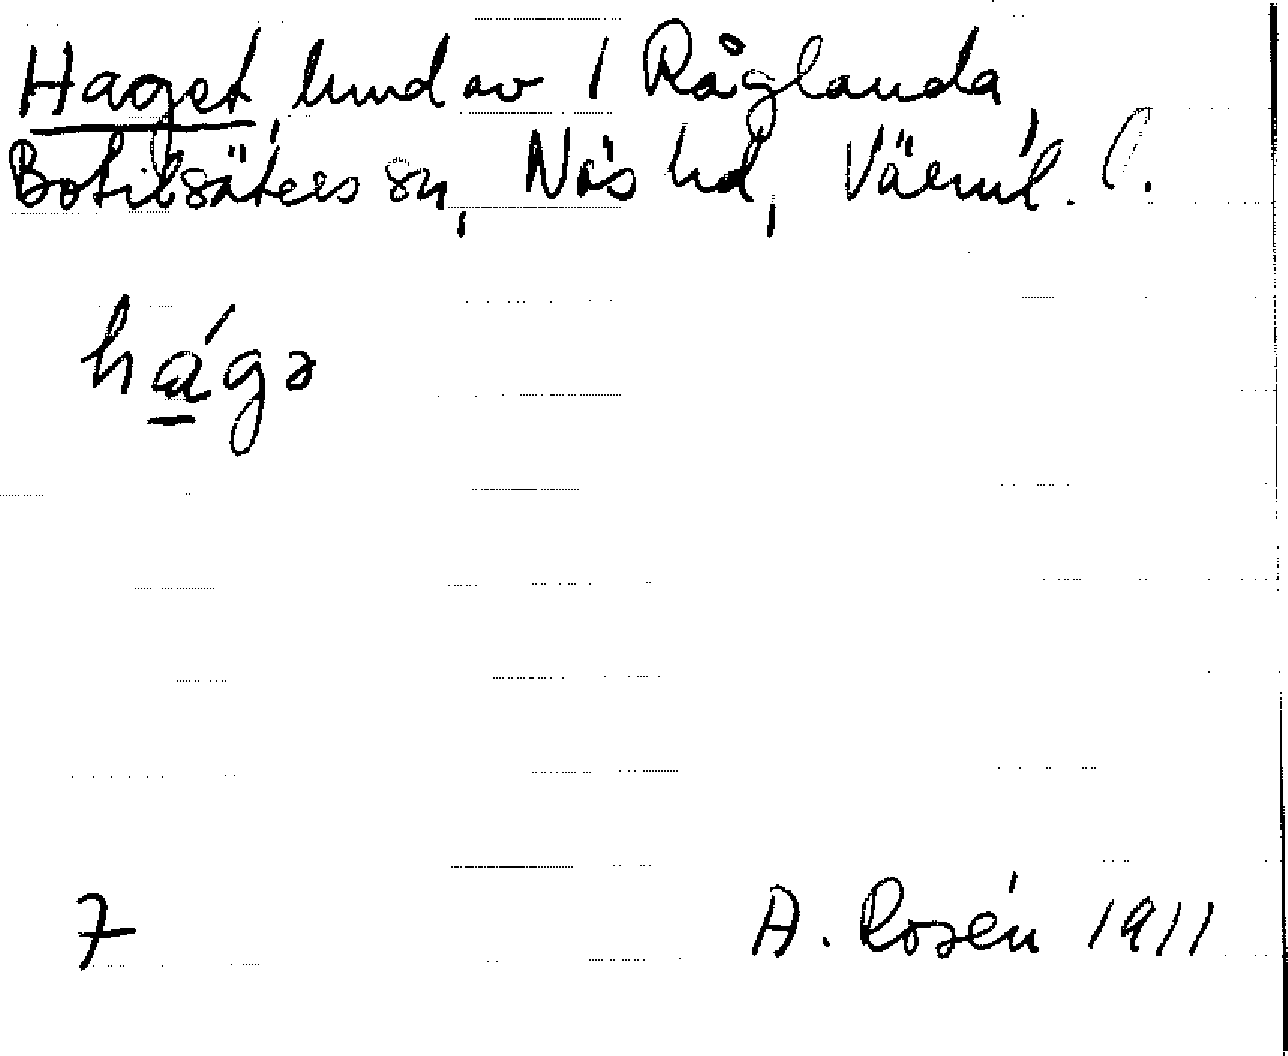 Haget, hmd av 1 Råglanda,
Botilsäters sn, Näs hd, Värml. l.
hágə
7 A. Rosén 1911